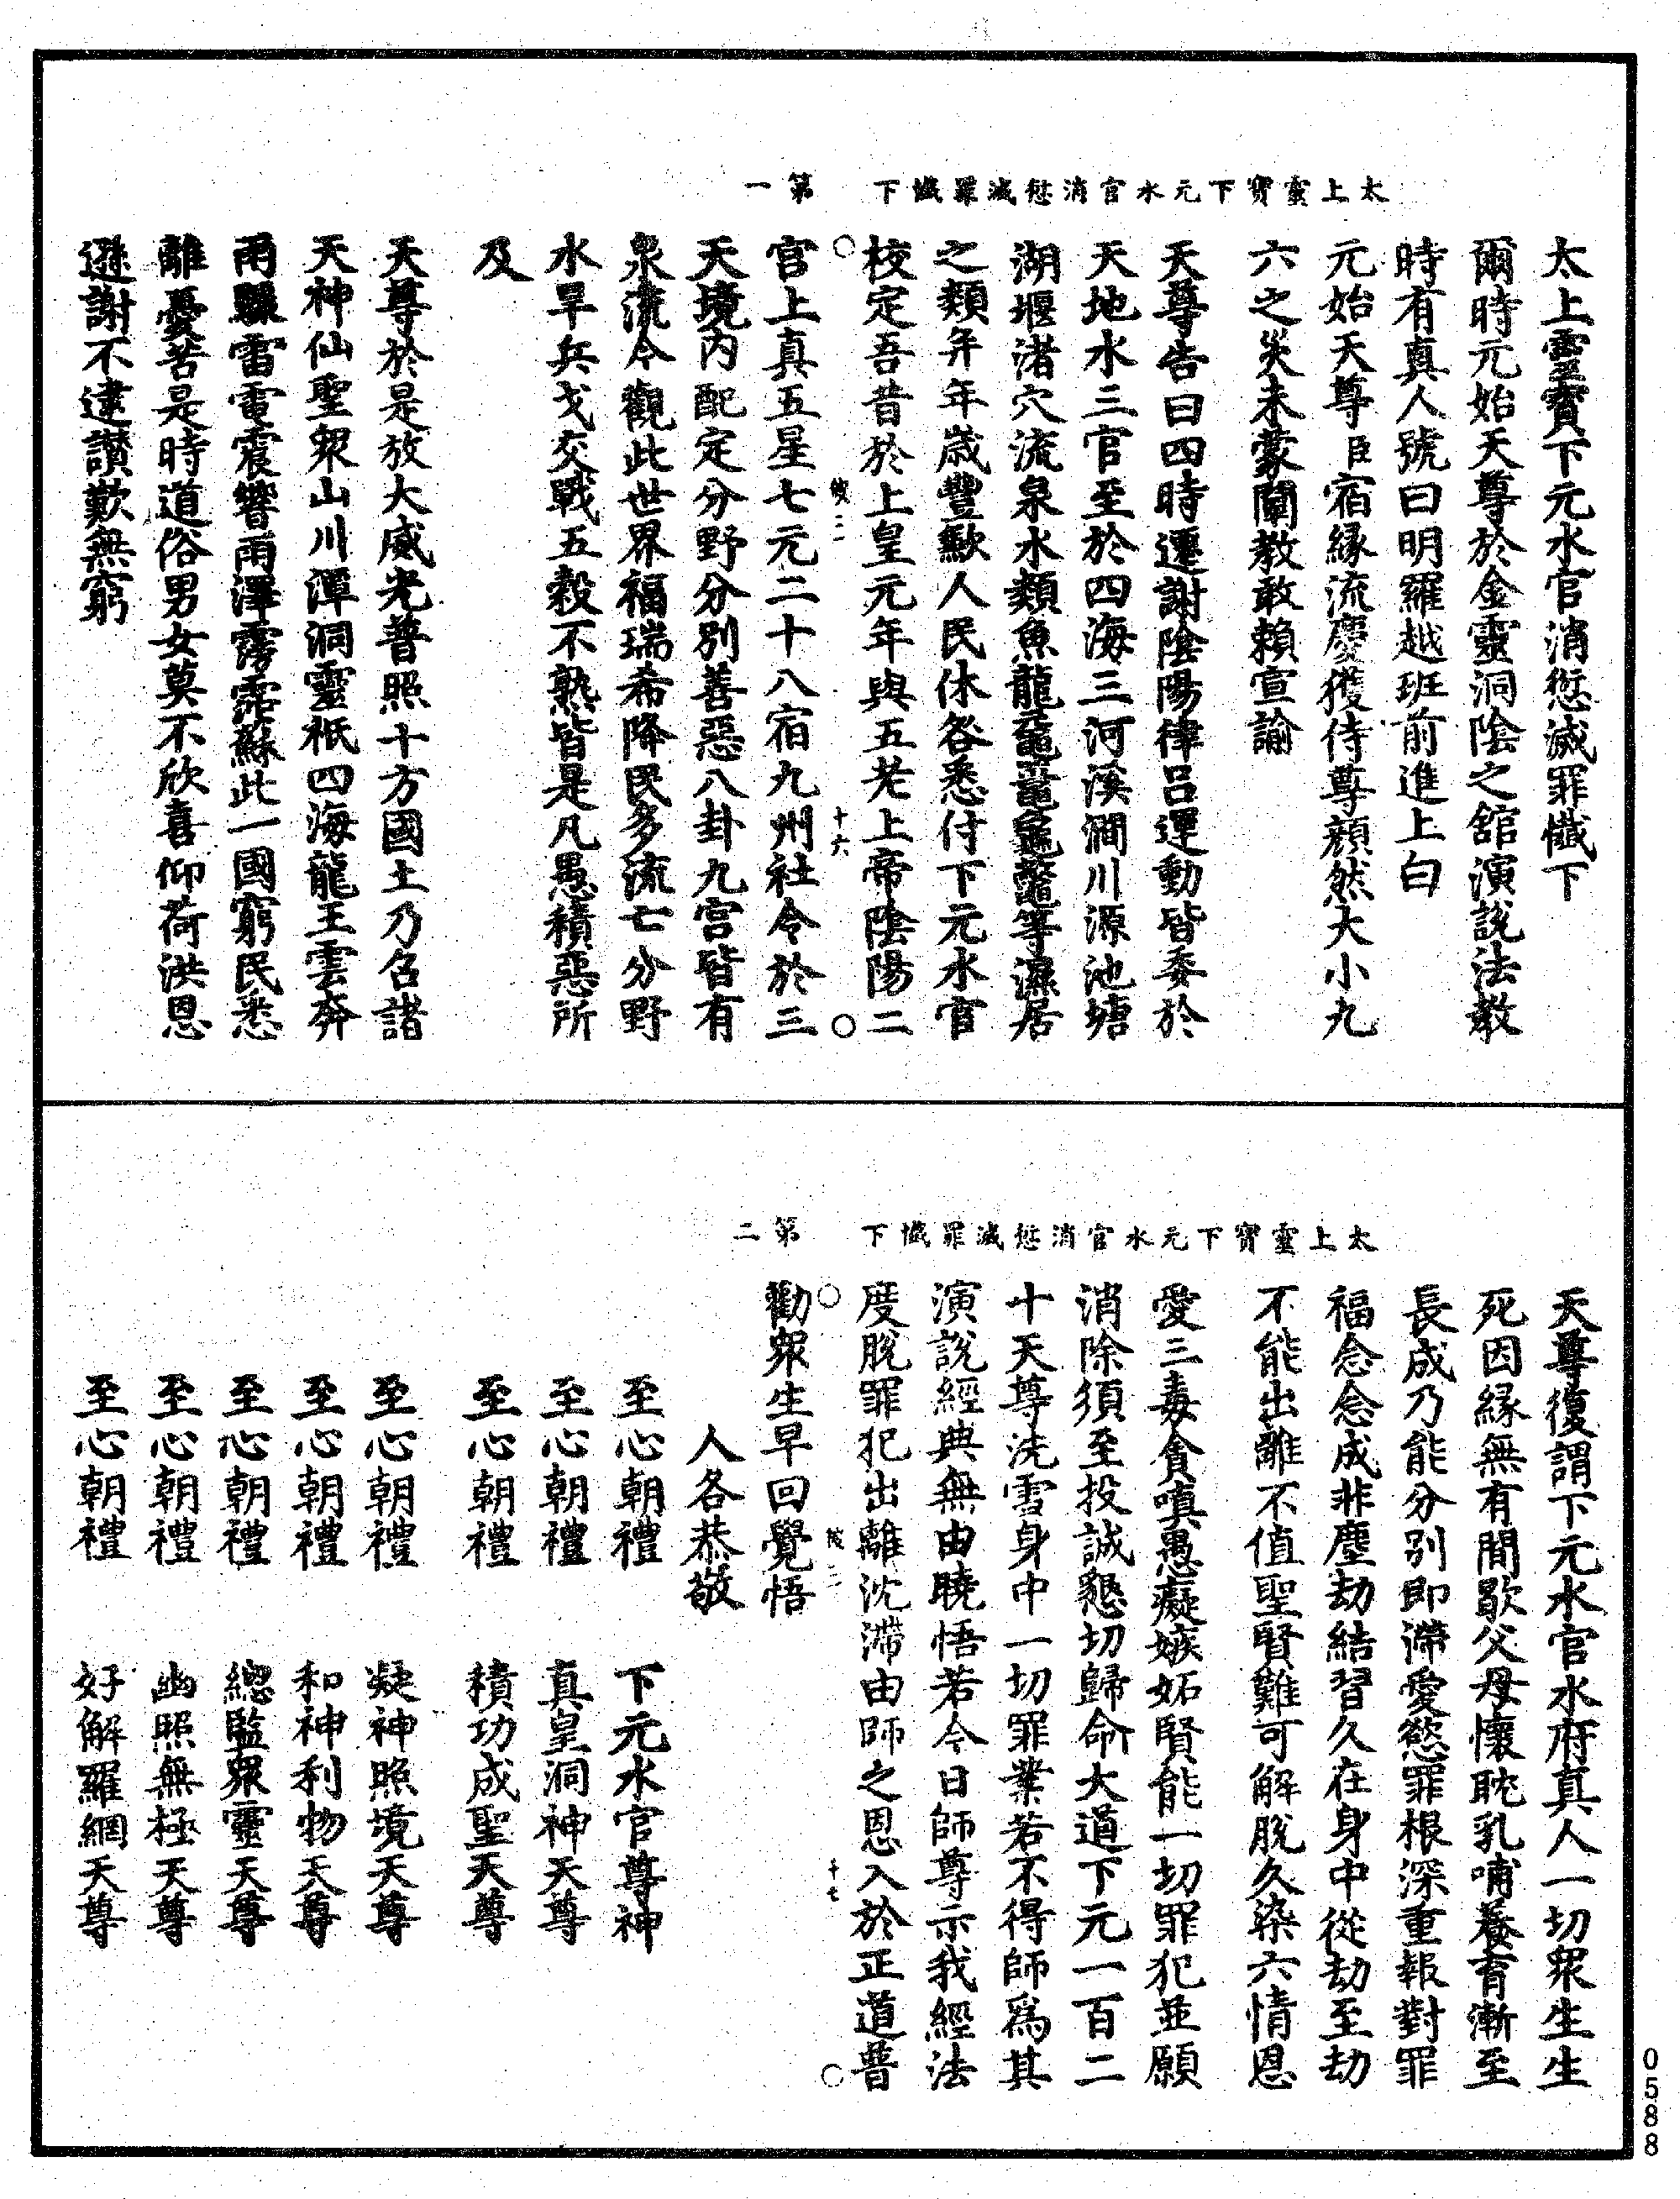 太上靈寶下元水官消愆滅罪懺下　第一
太上靈寶下元水官消愆滅罪懺下
爾時元始天尊於金靈洞陰之館演說法教
時有真人號曰明羅越班前進上白
元始天尊臣宿緣流慶獲侍尊顏然大小九
六之災未蒙闡教敢賴宣諭
天尊告曰四時遷謝陰陽律呂運動皆委於
天地水三官至於四海三河溪澗川源池塘
湖堰渚穴流泉水類魚龍黿鼉龜鼈等濕居
之類年年歲豐歉人民休咎悉付下元水官
校定吾昔於上皇元年與五老上帝陰陽二
十六
官上真五星七元二十八宿九州社令於三
天境內配定分野分別善惡八卦九宮皆有
泉流今觀此世界福瑞希降民多流亡分野
水旱兵戈交戰五穀不熟皆是凡愚積惡所
及
天尊於是放大威光普照十方國土乃召諸
天神仙聖眾山川潭洞靈祇四海龍王雲奔
雨驟雷電震響雨澤霶霈蘇此一國窮民悉
離憂苦是時道俗男女莫不欣喜仰荷洪恩
遜謝不逮讚歎無窮
太上靈寶下元水官消愆滅罪懺下　第二
天尊復謂下元水官水府真人一切眾生生
死因緣無有間歇父母懷耽乳哺養育漸至
長成乃能分別即滯愛慾罪根深重報對罪
福念念成非塵劫結習久在身中從劫至劫
不能出離不值聖賢難可解脫久染六情恩
愛三毒貪嗔愚癡嫉妬賢能一切罪犯並願
消除須至投誠懇切歸命大道下元一百二
十天尊洗雪身中一切罪業若不得師為其
演說經典無由曉悟若今日師尊示我經法
度脫罪犯出離沈滯由師之恩入於正道普
十七
勸眾生早回覺悟
人各恭敬
至心朝禮　下元水官尊神
至心朝禮　真皇洞神天尊
至心朝禮　積功成聖天尊
至心朝禮　凝神照境天尊
至心朝禮　和神利物天尊
至心朝禮　總監眾靈天尊
至心朝禮　幽照無極天尊
至心朝禮　好解羅網天尊
0588